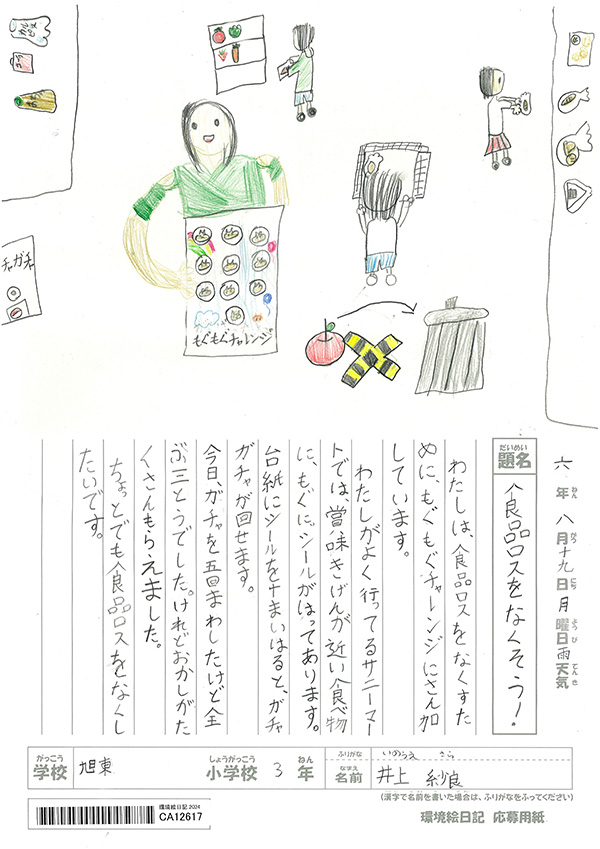 ガチャガチャ
もぐもぐチャレンジ
六年八月十九日月曜日雨天気
ねん がつ にち ようび てんき
だいめい
題名
食品ロスをなくそう!
わたしは、食品ロスをなくすた
めに、もぐもぐチャーレンジにさん加
しています。
わたしがよく行ってるサニーマー
トでは、賞味きげんが近い食べ物
に、もぐにシールがはってあります。
台紙にシールを十まいはると、ガチャ
ガチャが回せます。
今日、ガチャを五回まわしたけど全
ぶ三とうでした。けれどおかしがた
くさんもらえました。
ちょっとでも食品ロスをなくし
たいです。
がっこう
学校
旭東
しょうがっこう
小学校
3
ねん
年
ふりがな
いのうえ さら
なまえ
名前
井上 紗良
(漢字で名前を書いた場合は、ふりがなをふってください)
環境絵日記 2024
CA12617
環境絵日記 応募用紙